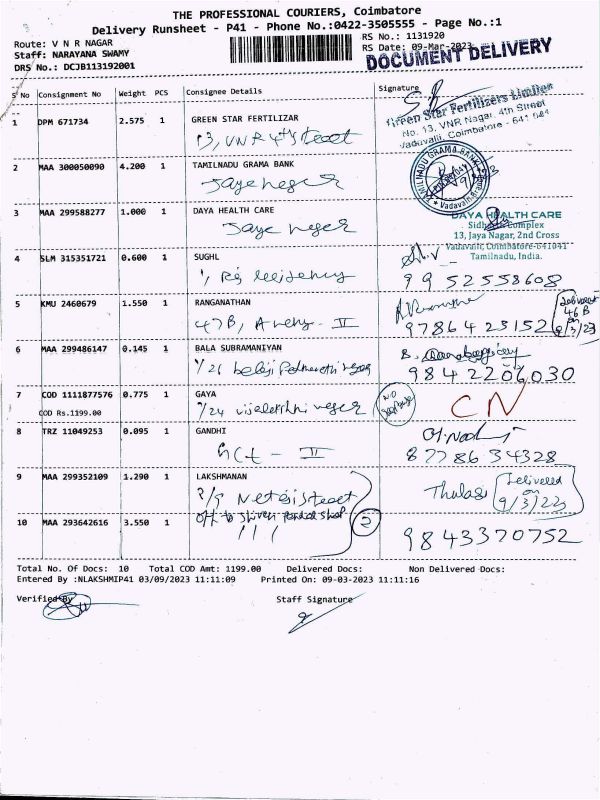 THE PROFESSIONAL COURIERS, Coimbatore
Delivery Runsheet - P41 - Phone No.:0422-3505555 - Page No.:1
Route: V N R NAGAR
Staff: NARAYANA SWAMY
DRS No.: DCJB113192001
RS No.: 1131920
RS Date: 09-Mar-2023
DOCUMENT DELIVERY
S No Consignment No Weight PCS Consignee Details Signature
1 DPM 671734 2.575 1 GREEN STAR FERTILIZAR
13, VNR 4th Street
Green Star Fertilizers Limited
No. 13, VNR Nagar, 4th Street
Vaduvalli, Coimbatore - 641 041
2 MAA 300050090 4.200 1 TAMILNADU GRAMA BANK
Jaye neger
TAMILNADU GRAMA BANK
3 MAA 299588277 1.000 1 DAYA HEALTH CARE
Jaye neger
DAYA HEALTH CARE
Complex
13, Jaya Nagar, 2nd Cross
Vadavalli, Coimbatore-641041
Tamilnadu, India.
4 SLM 315351721 0.600 1 SUGHL
9952558608
5 KMU 2460679 1.550 1 RANGANATHAN
47B, - II
9786423152
Delivered
46 B
on
9/3/23
6 MAA 299486147 0.145 1 BALA SUBRAMANIYAN
1/21 balaji
9842206030
7 COD 1111877576 0.775 1 GAYA
COD Rs.1199.00
1/24 neger
NO
CN
8 TRZ 11049253 0.095 1 GANDHI
hct - II
8778634328
9 MAA 299352109 1.290 1 LAKSHMANAN
Street
Thulasi
Delivered
on
9/3/23
10 MAA 293642616 3.550 1
2
9843370752
Total No. Of Docs: 10 Total COD Amt: 1199.00 Delivered Docs: Non Delivered Docs:
Entered By :NLAKSHMIP41 03/09/2023 11:11:09 Printed On: 09-03-2023 11:11:16
Verified By Staff Signature